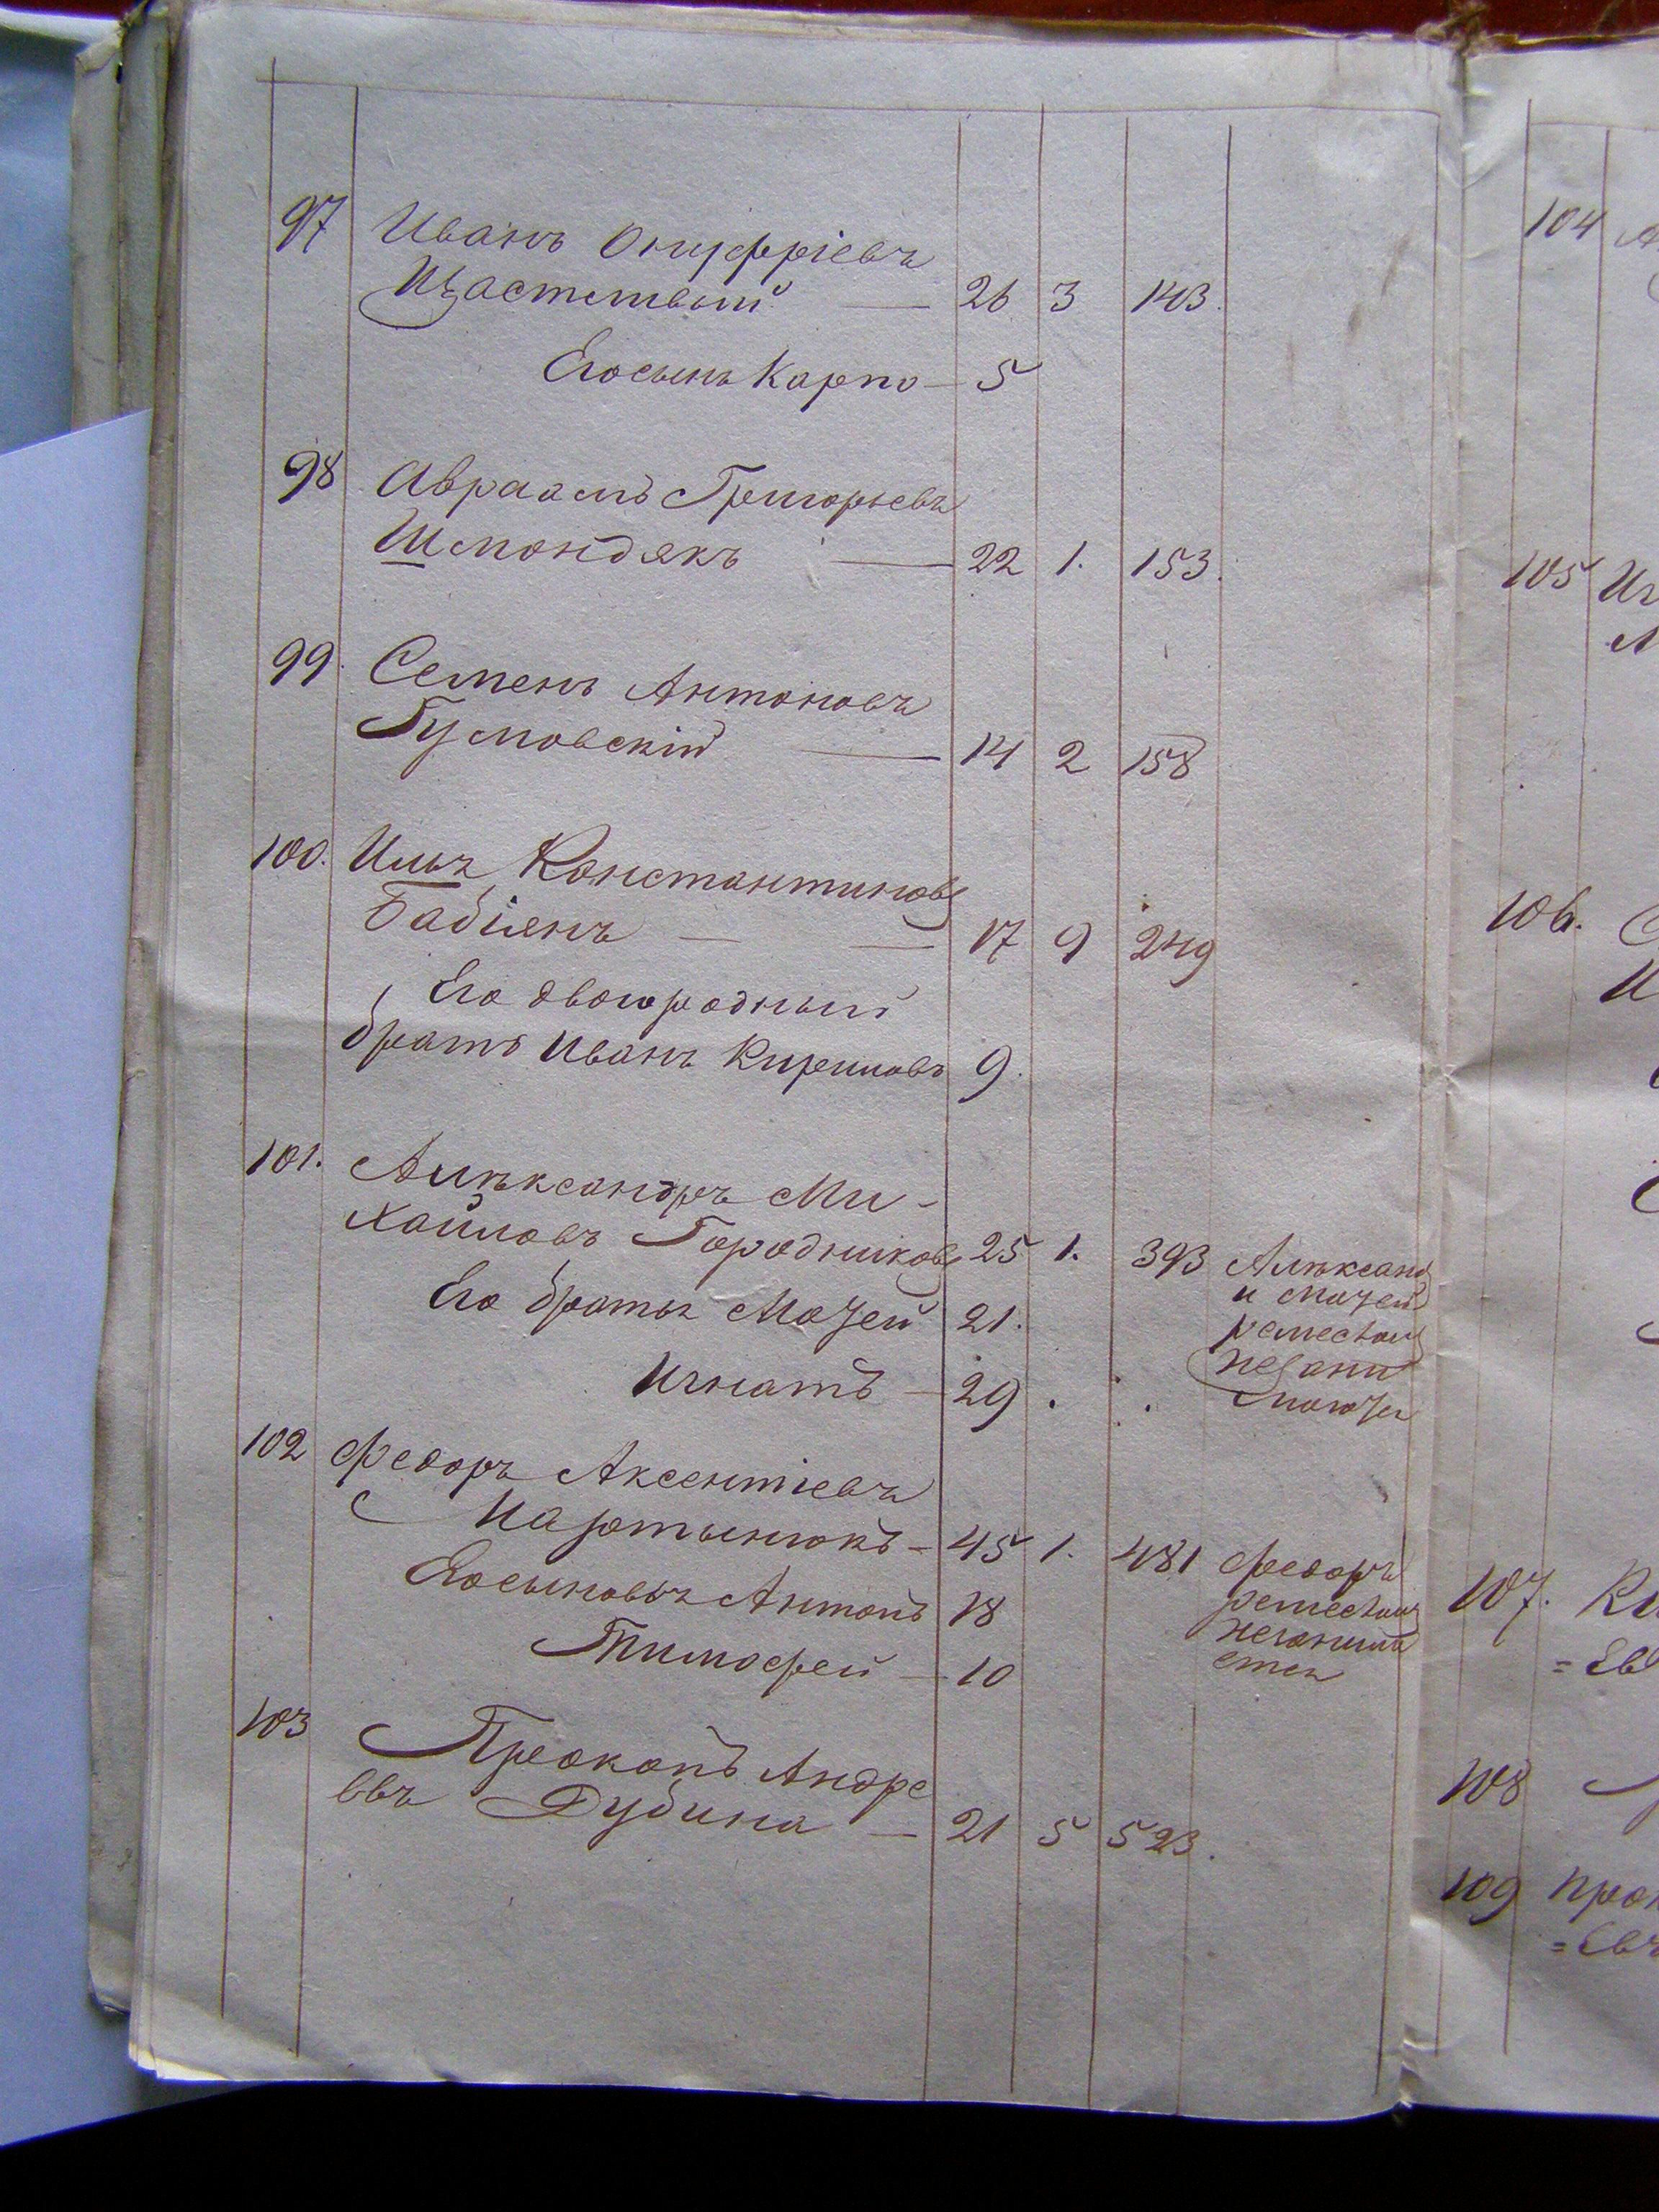 97 Иванъ Онуфріевъ
Щастливый — 26 3 143.
Его сынъ Карпо — 5
98 Авраамъ Григорьевъ
Шмондякъ — 22 1. 153.
99. Семенъ Антоновъ
Гумовскій — 14 2 158
100. Илья Константиновъ
Бабіянъ — — 17 9 249
Его двоюродный
братъ Иванъ Кириловъ 9.
101. Алѣксандръ Ми-
хайловъ Городниковъ 25 1. 393 Алѣксанд
Его братья Мозей 21. и Мозей
ремеслом
Игнатъ — 29
102 Федоръ Аксентіевъ
Мартынюкъ — 45 1. 481 Федоръ
Его сыновья Антонъ 18 ремеслом
незанима
Тимофей — 10 ется
103 Прокопъ Андре
евъ Дубина — 21 5 523.
104
105
106.
107.
108
109